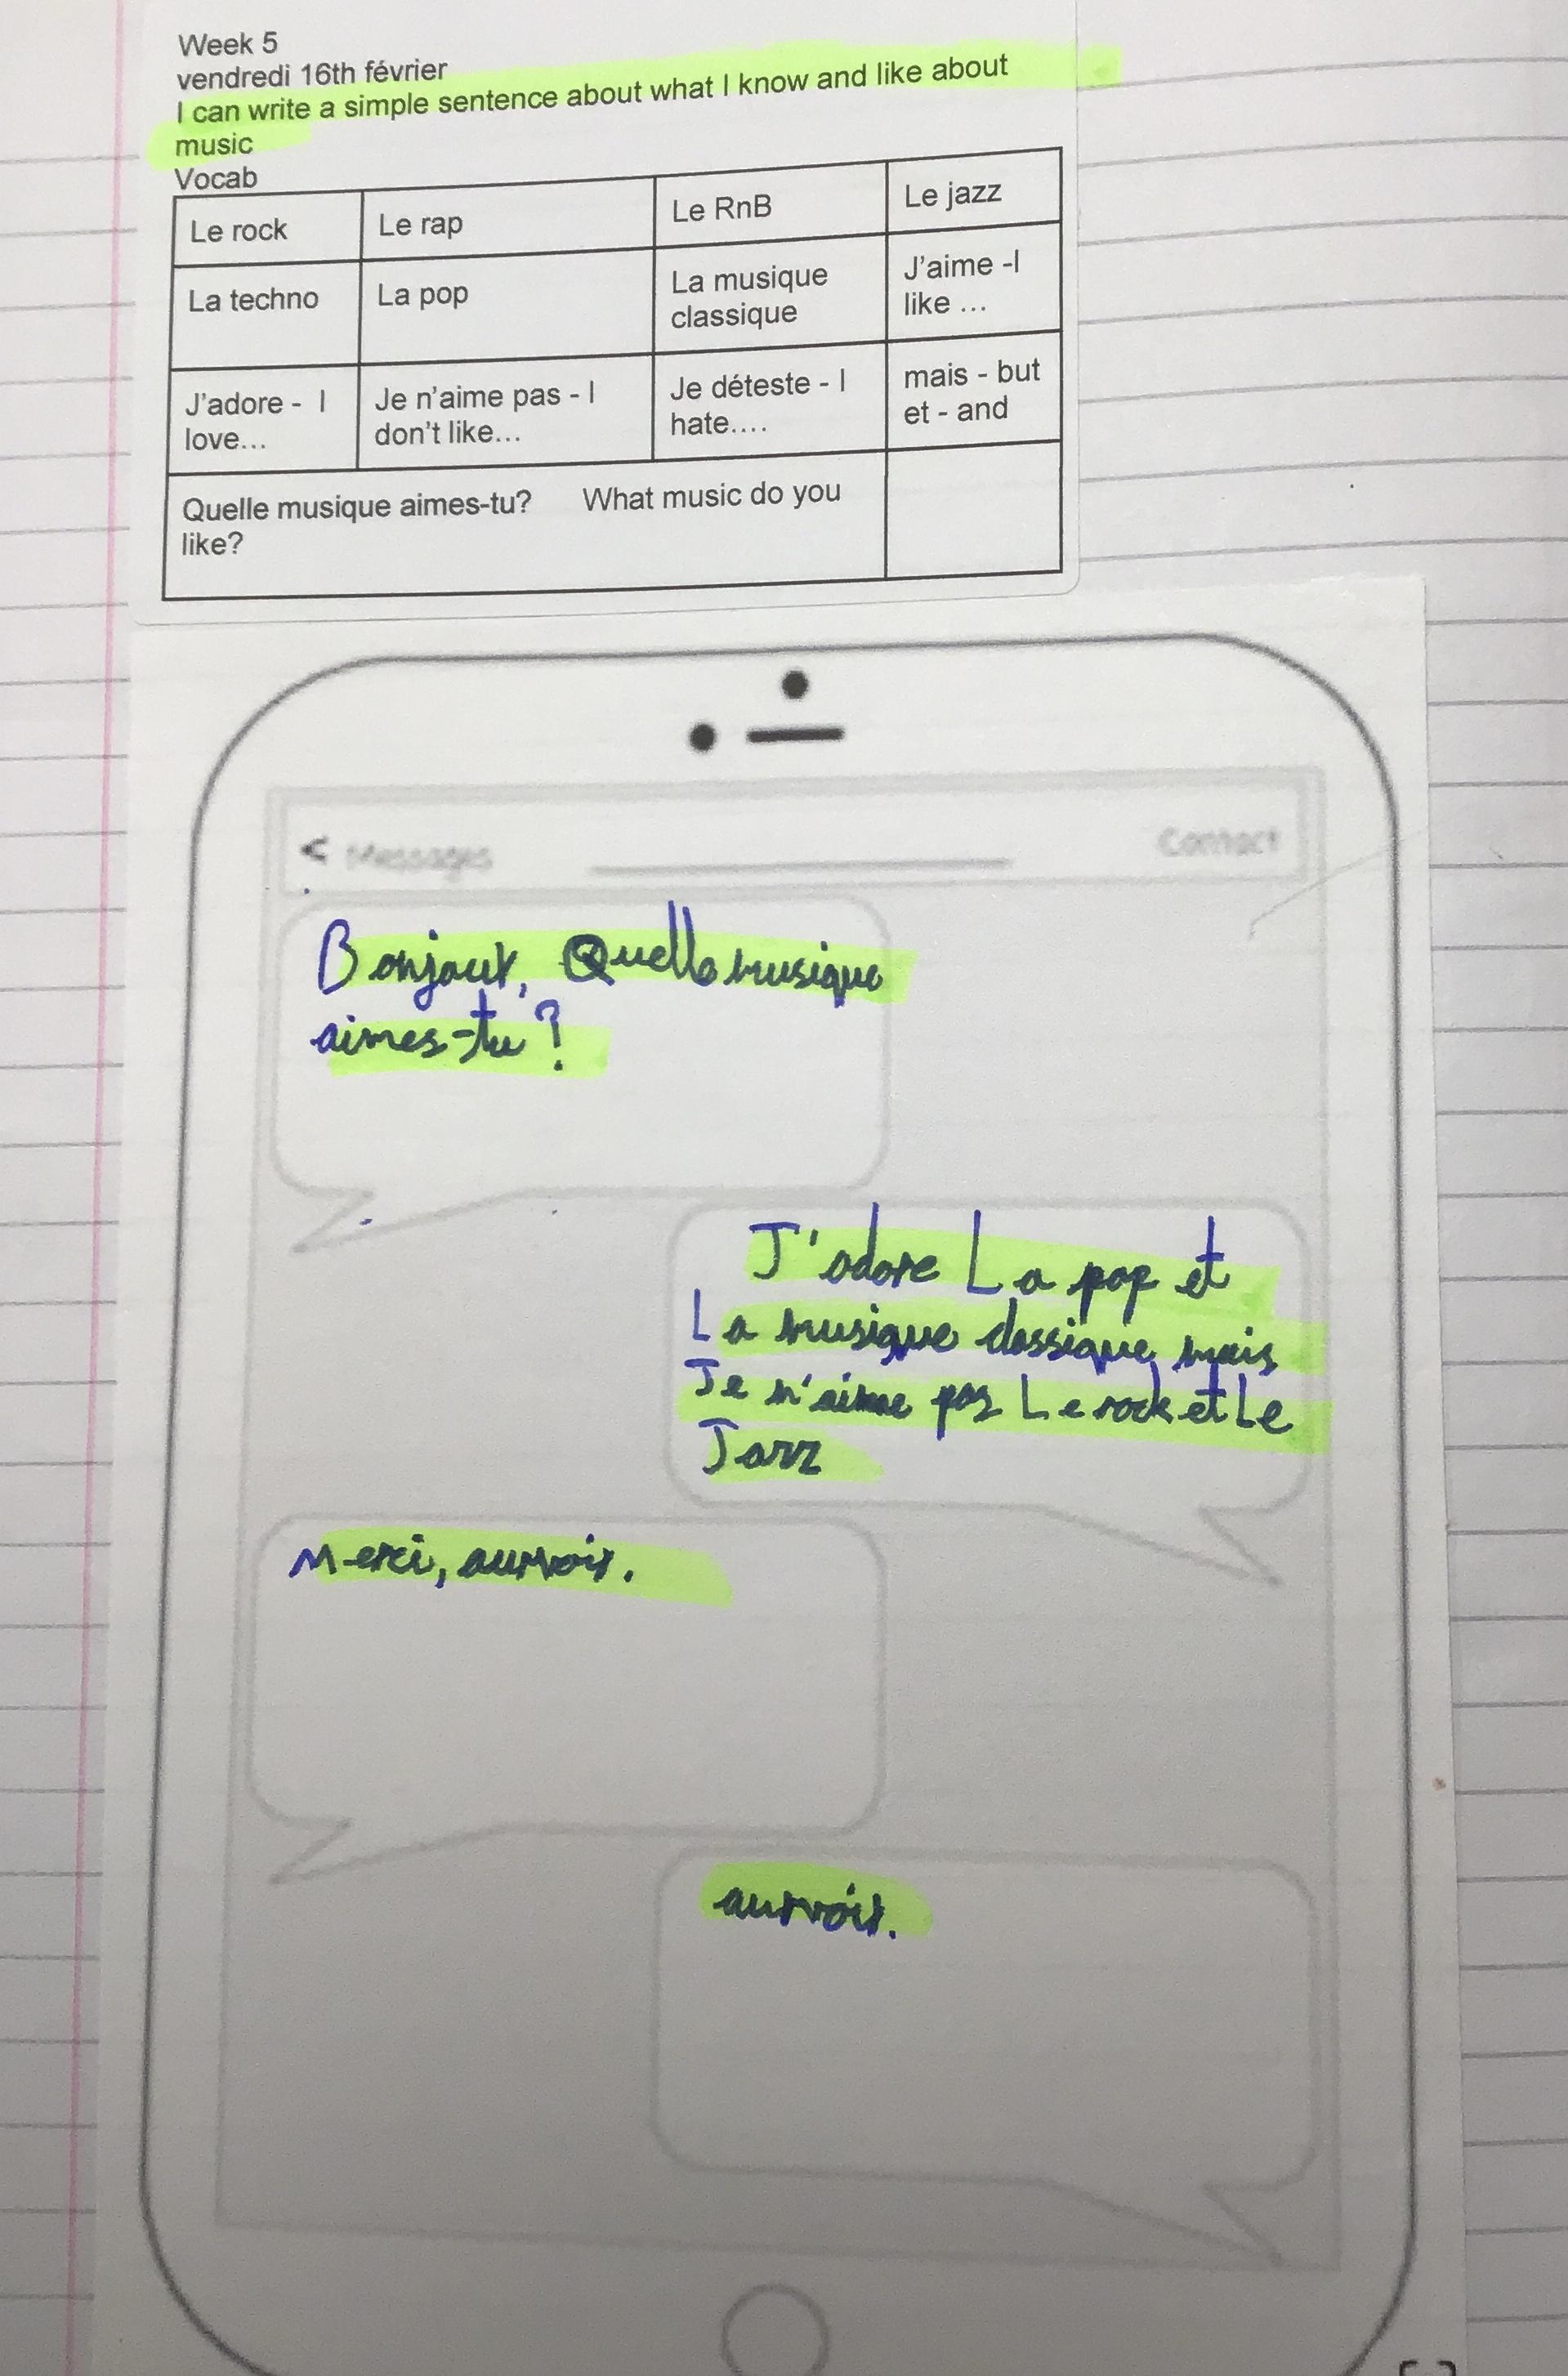 Week 5
vendredi 16th février
I can write a simple sentence about what I know and like about
music
Vocab
Le rock
Le rap
Le RnB
Le jazz
La techno
La pop
La musique
classique
J'aime -I
like ...
J'adore - I
love...
Je n'aime pas - I
don't like...
Je déteste - I
hate....
mais - but
et - and
Quelle musique aimes-tu? What music do you
like?
< Messages
Contact
Bonjour, Quelle musique
aimes-tu?
J'adore La pop et
La musique classique mais
Je n'aime pas Le rock et Le
Jazz
Merci, aurvoir.
aurvoir.